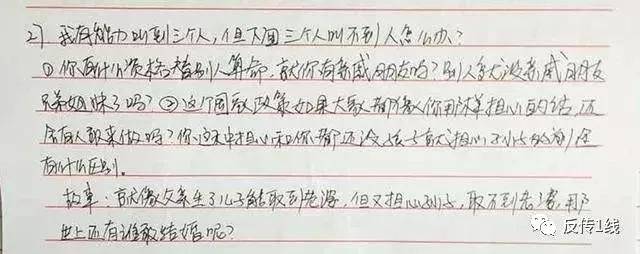 2) 我有能力叫到三个人,但下面三个人叫不到人怎么办?
① 你有什么资格替别人算命,就你有亲戚朋友吗?别人都没亲戚朋友
兄弟姐妹了吗?② 这个国家政策如果大家都像你那样担心的话,还
会有人敢来做吗?你这种担心和你都还没孩子就担心孙子的问题
有什么区别。
故事:就像父亲生了儿子能取到老婆,但又担心孙子,取不到老婆,那
世上还有谁敢结婚呢?
反传1线